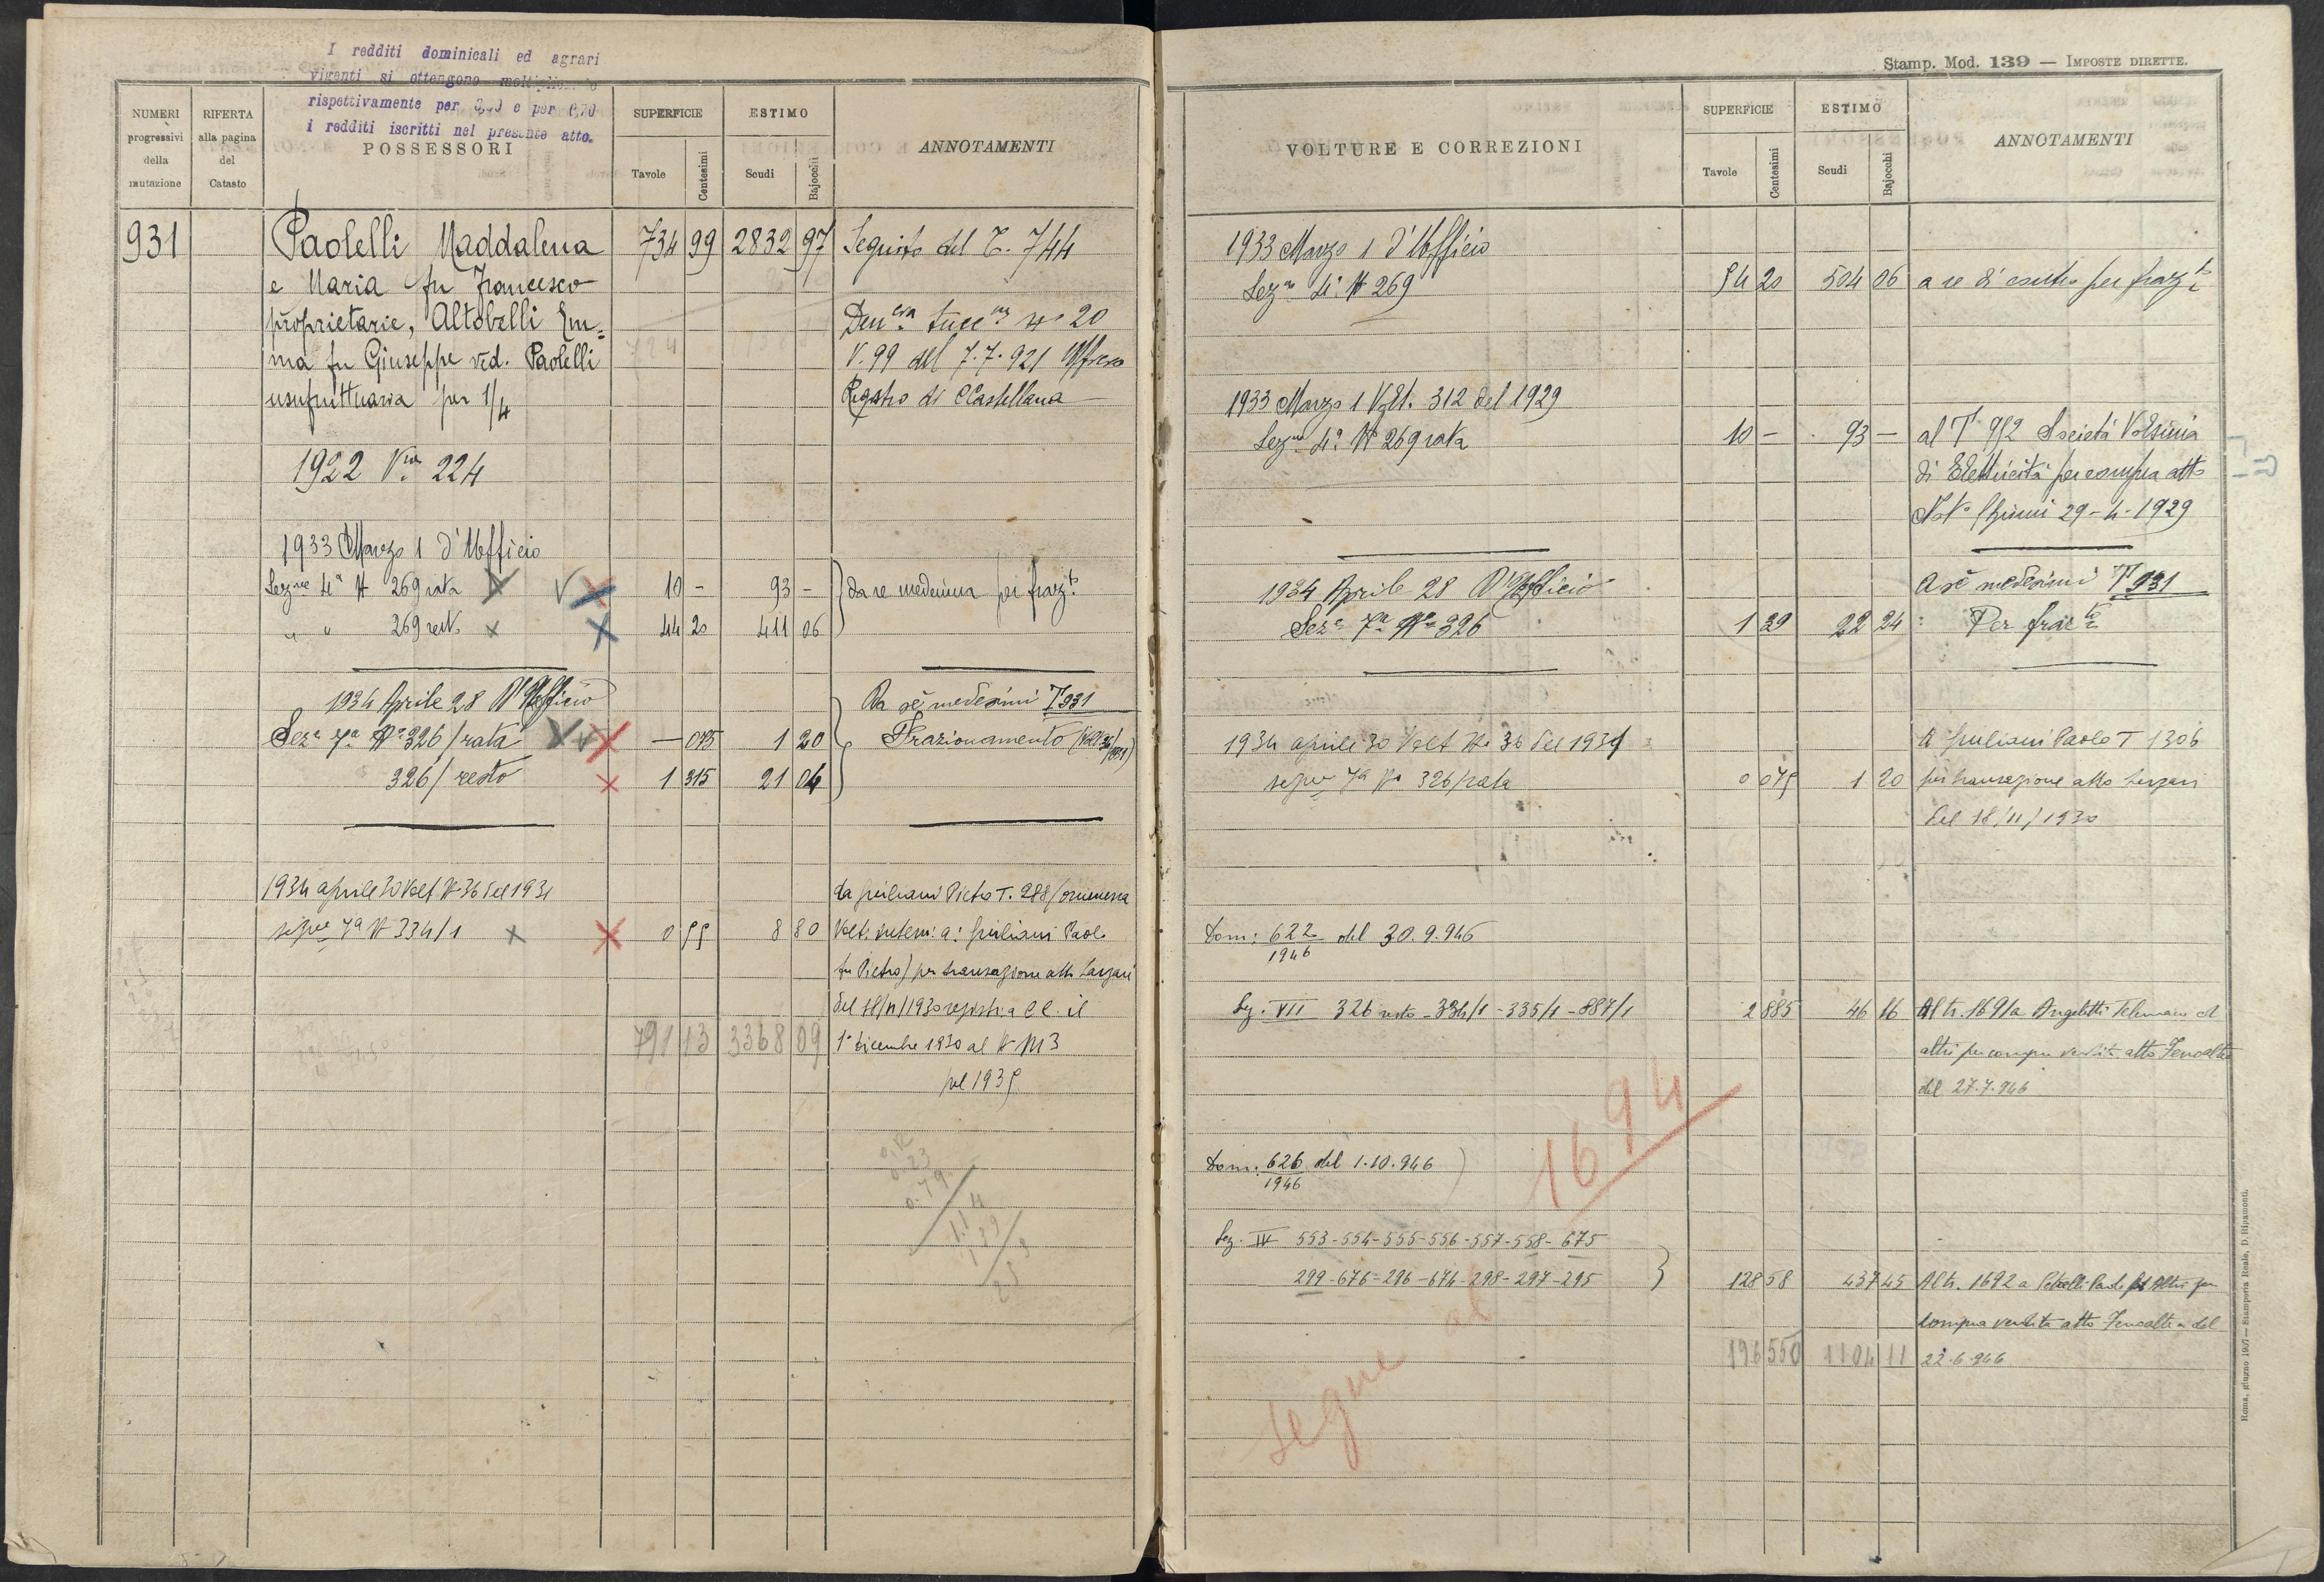 I redditi dominicali ed agrari
vigenti si ottengono
rispettivamente per 3,90 e per 0,70
i redditi iscritti nel presente atto.
NUMERI progressivi della mutazione
RIFERTA alla pagina del Catasto
POSSESSORI
SUPERFICIE
Tavole Centesimi
ESTIMO
Scudi Bajocchi
ANNOTAMENTI
931 Paolelli Maddalena 734 99 2832 97 Seguito del T. 744
e Maria fu Francesco
proprietarie, Altobelli Em= N° 20
ma fu Giuseppe ved. Paolelli V. 99 del 7.7.921
usufruttuaria per 1/4 Registro di CCastellana
1922 V.ra 224
1933 Marzo 1 d'Ufficio
Sez.ne 4a N 269 rata V 10 - 93 - da se medesima per fraz.to
" " 269 resto 44 20 411 06
1934 Aprile 28 D'Ufficio Da sè medesimi T 931
Seza 7a No 326/rata V — 075 1 20 Frazionamento
326/resto 1 315 21 04
1934 aprile 30 Volt N. 36 del 1931 da Giuliani Pietro T. 288 (ommessa
7a N 334/1 0 55 8 80 Volt. interm: a: Giuliani Paolo
fu Pietro) per transazione atto Lazzari
del 18/11/1930 registr: a C C. il
791 13 3368 09 1° dicembre 1930 al N
pel 1935
Stamp. Mod. 139 — IMPOSTE DIRETTE.
VOLTURE E CORREZIONI
SUPERFICIE
Tavole Centesimi
ESTIMO
Scudi Bajocchi
ANNOTAMENTI
1933 Marzo 1 d'Ufficio
Sez.ne 4a N 269 54 20 504 06 a se per fraz.to
1933 Marzo 1 Volt. 312 del 1929
Sez.ne 4a N 269 rata 10 - 93 - al T 952 Società Volsinia
di Elettricità per compra atto
29-4-1929
1934 Aprile 28 D'Ufficio A sè medesimi T 931
Seza 7a No 326 1 39 22 24 Per fraz.to
1934 aprile 30 Volt No 36 del 1931 A Giuliani Paolo T 1306
7a No 326/rata 0 075 1 20 per transazione atto Lazzari
del 18/11/1930
Dom: 622/1946 del 30.9.946
Sez. VII 326 resto - 334/1 - 335/1 - 887/1 2 885 46 16 Al tr. 1691 a Angeletti Telemaco ed
altri per compra vendita atto Fenoaltea
del 27.7.946
1694
Dom: 626/1946 del 1.10.946
Sez. IV 553-554-555-556-557-558-675
299-676-296-674-298-297-295 128 58 437 45 Al tr. 1692 a Altri per
compra vendita atto Fenoaltea del
196 550 1104 11 22.6.946
segue al
Roma, giugno 1907 — Stamperia Reale, D. Ripamonti.